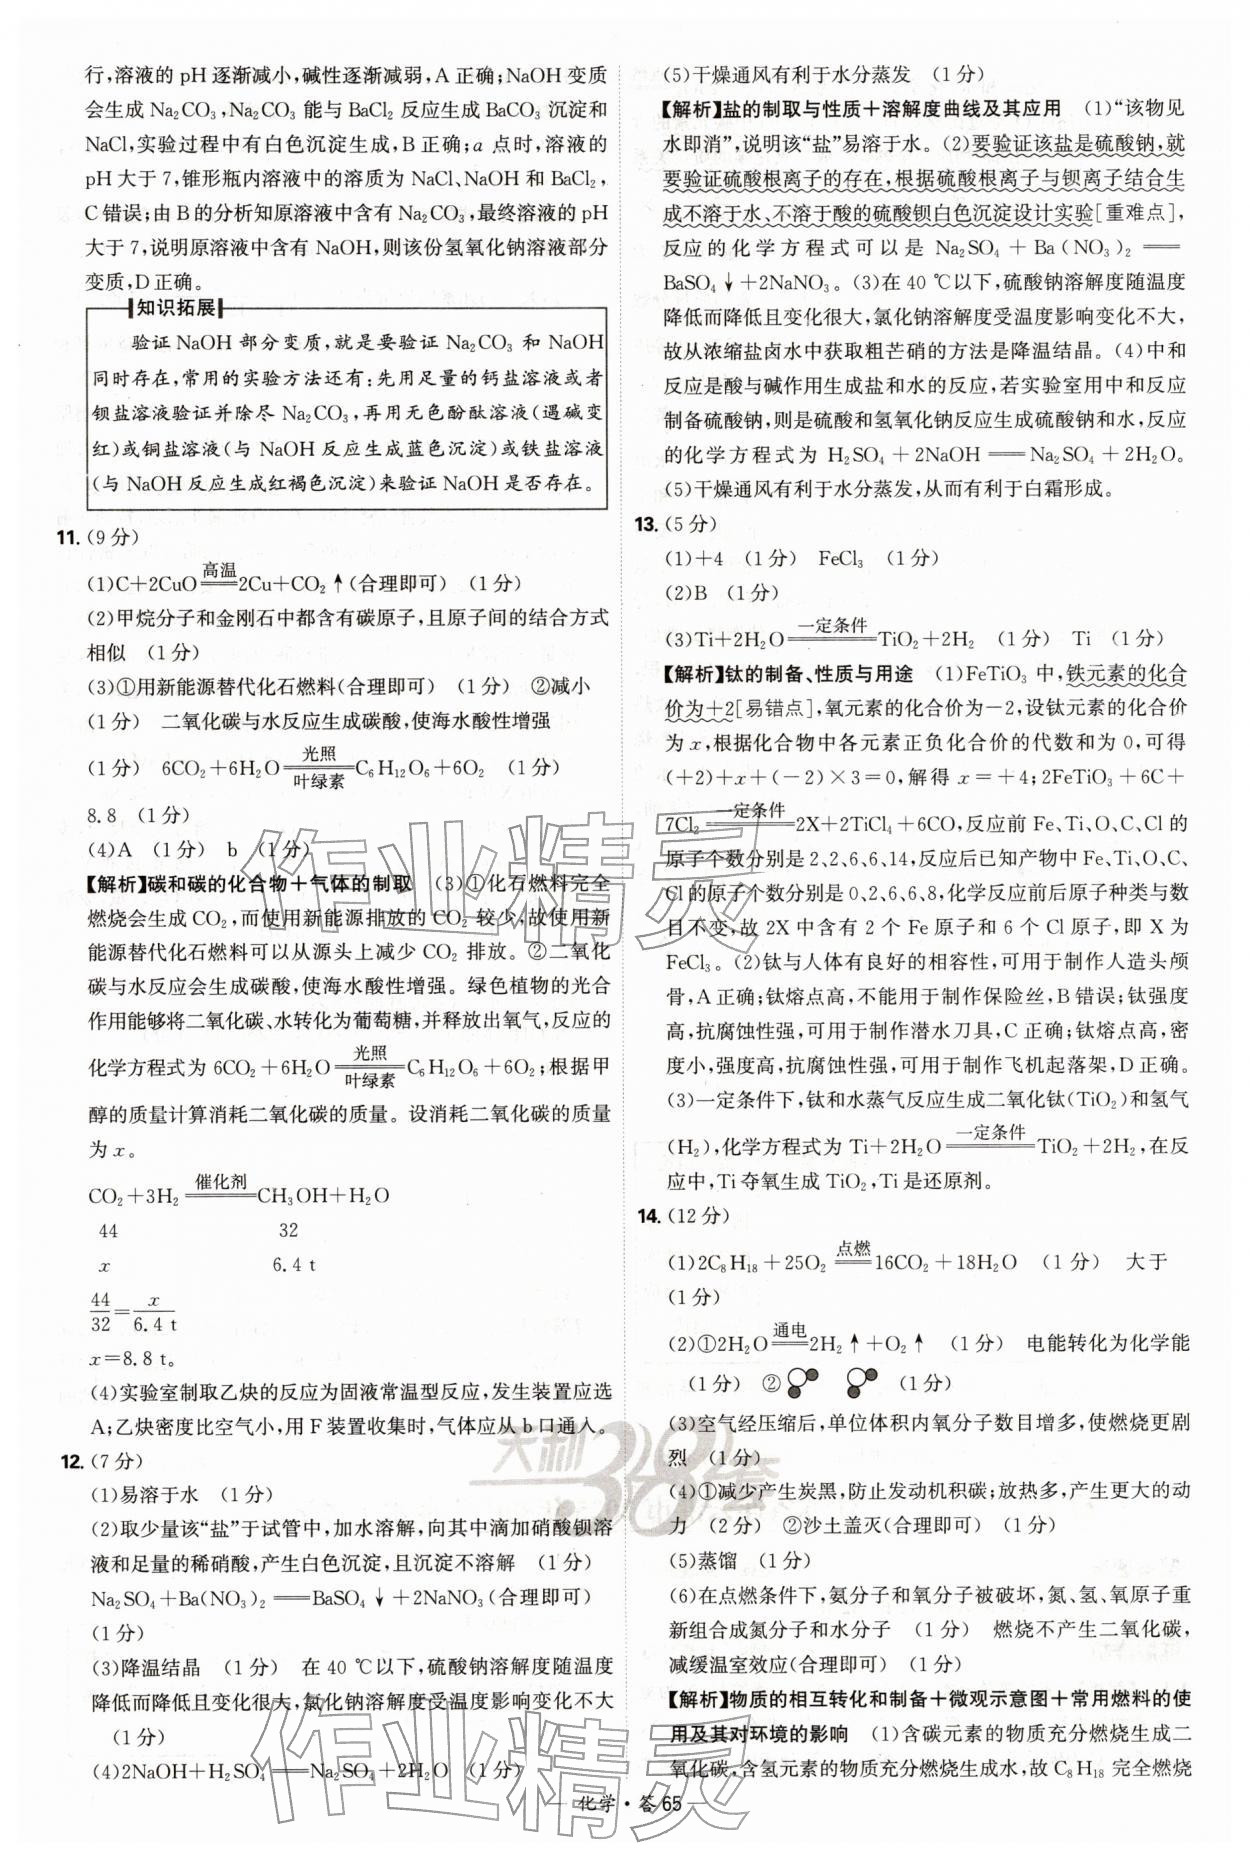 行,溶液的 pH 逐渐减小,碱性逐渐减弱,A 正确;NaOH 变质
会生成 Na₂CO₃,Na₂CO₃ 能与 BaCl₂ 反应生成 BaCO₃ 沉淀和
NaCl,实验过程中有白色沉淀生成,B 正确;a 点时,溶液的
pH 大于 7,锥形瓶内溶液中的溶质为 NaCl、NaOH 和 BaCl₂,
C 错误;由 B 的分析知原溶液中含有 Na₂CO₃,最终溶液的 pH
大于 7,说明原溶液中含有 NaOH,则该份氢氧化钠溶液部分
变质,D 正确。
知识拓展
验证 NaOH 部分变质,就是要验证 Na₂CO₃ 和 NaOH
同时存在,常用的实验方法还有:先用足量的钙盐溶液或者
钡盐溶液验证并除尽 Na₂CO₃,再用无色酚酞溶液(遇碱变
红)或铜盐溶液(与 NaOH 反应生成蓝色沉淀)或铁盐溶液
(与 NaOH 反应生成红褐色沉淀)来验证 NaOH 是否存在。
11. (9 分)
(1)C+2CuO ══高温══ 2Cu+CO₂↑(合理即可) (1 分)
(2)甲烷分子和金刚石中都含有碳原子,且原子间的结合方式
相似 (1 分)
(3)①用新能源替代化石燃料(合理即可) (1 分) ②减小
(1 分) 二氧化碳与水反应生成碳酸,使海水酸性增强
(1 分) 6CO₂+6H₂O ══光照/叶绿素══ C₆H₁₂O₆+6O₂ (1 分)
8.8 (1 分)
(4)A (1 分) b (1 分)
【解析】碳和碳的化合物+气体的制取 (3)①化石燃料完全
燃烧会生成 CO₂,而使用新能源排放的 CO₂ 较少,故使用新
能源替代化石燃料可以从源头上减少 CO₂ 排放。②二氧化
碳与水反应会生成碳酸,使海水酸性增强。绿色植物的光合
作用能够将二氧化碳、水转化为葡萄糖,并释放出氧气,反应的
化学方程式为 6CO₂+6H₂O ══光照/叶绿素══ C₆H₁₂O₆+6O₂;根据甲
醇的质量计算消耗二氧化碳的质量。设消耗二氧化碳的质量
为 x。
CO₂+3H₂ ══催化剂══ CH₃OH+H₂O
44 32
x 6.4 t
44/32=x/6.4 t
x=8.8 t。
(4)实验室制取乙炔的反应为固液常温型反应,发生装置应选
A;乙炔密度比空气小,用 F 装置收集时,气体应从 b 口通入。
12. (7 分)
(1)易溶于水 (1 分)
(2)取少量该“盐”于试管中,加水溶解,向其中滴加硝酸钡溶
液和足量的稀硝酸,产生白色沉淀,且沉淀不溶解 (1 分)
Na₂SO₄+Ba(NO₃)₂══BaSO₄↓+2NaNO₃(合理即可)
(1 分)
(3)降温结晶 (1 分) 在 40 ℃以下,硫酸钠溶解度随温度
降低而降低且变化很大,氯化钠溶解度受温度影响变化不大
(1 分)
(4)2NaOH+H₂SO₄══Na₂SO₄+2H₂O (1 分)
(5)干燥通风有利于水分蒸发 (1 分)
【解析】盐的制取与性质+溶解度曲线及其应用 (1)“该物见
水即消”,说明该“盐”易溶于水。(2)要验证该盐是硫酸钠,就
要验证硫酸根离子的存在,根据硫酸根离子与钡离子结合生
成不溶于水、不溶于酸的硫酸钡白色沉淀设计实验[重难点],
反应的化学方程式可以是 Na₂SO₄+Ba(NO₃)₂══
BaSO₄↓+2NaNO₃。(3)在 40 ℃以下,硫酸钠溶解度随温度
降低而降低且变化很大,氯化钠溶解度受温度影响变化不大,
故从浓缩盐卤水中获取粗芒硝的方法是降温结晶。(4)中和
反应是酸与碱作用生成盐和水的反应,若实验室用中和反应
制备硫酸钠,则是硫酸和氢氧化钠反应生成硫酸钠和水,反应
的化学方程式为 H₂SO₄+2NaOH══Na₂SO₄+2H₂O。
(5)干燥通风有利于水分蒸发,从而有利于白霜形成。
13. (5 分)
(1)+4 (1 分) FeCl₃ (1 分)
(2)B (1 分)
(3)Ti+2H₂O ══一定条件══ TiO₂+2H₂ (1 分) Ti (1 分)
【解析】钛的制备、性质与用途 (1)FeTiO₃ 中,铁元素的化合
价为+2[易错点],氧元素的化合价为−2,设钛元素的化合价
为 x,根据化合物中各元素正负化合价的代数和为 0,可得
(+2)+x+(−2)×3=0,解得 x=+4;2FeTiO₃+6C+
7Cl₂ ══一定条件══ 2X+2TiCl₄+6CO,反应前 Fe、Ti、O、C、Cl 的
原子个数分别是 2、2、6、6、14,反应后已知产物中 Fe、Ti、O、C、
Cl 的原子个数分别是 0、2、6、6、8,化学反应前后原子种类与数
目不变,故 2X 中含有 2 个 Fe 原子和 6 个 Cl 原子,即 X 为
FeCl₃。(2)钛与人体有良好的相容性,可用于制作人造头颅
骨,A 正确;钛熔点高,不能用于制作保险丝,B 错误;钛强度
高,抗腐蚀性强,可用于制作潜水刀具,C 正确;钛熔点高,密
度小,强度高,抗腐蚀性强,可用于制作飞机起落架,D 正确。
(3)一定条件下,钛和水蒸气反应生成二氧化钛(TiO₂)和氢气
(H₂),化学方程式为 Ti+2H₂O ══一定条件══ TiO₂+2H₂,在反
应中,Ti 夺氧生成 TiO₂,Ti 是还原剂。
14. (12 分)
(1)2C₈H₁₈+25O₂ ══点燃══ 16CO₂+18H₂O (1 分) 大于
(1 分)
(2)①2H₂O ══通电══ 2H₂↑+O₂↑ (1 分) 电能转化为化学能
(1 分) ② (1 分)
(3)空气经压缩后,单位体积内氧分子数目增多,使燃烧更剧
烈 (1 分)
(4)①减少产生炭黑,防止发动机积碳;放热多,产生更大的动
力 (2 分) ②沙土盖灭(合理即可) (1 分)
(5)蒸馏 (1 分)
(6)在点燃条件下,氨分子和氧分子被破坏,氮、氢、氧原子重
新组合成氮分子和水分子 (1 分) 燃烧不产生二氧化碳,
减缓温室效应(合理即可) (1 分)
【解析】物质的相互转化和制备+微观示意图+常用燃料的使
用及其对环境的影响 (1)含碳元素的物质充分燃烧生成二
氧化碳,含氢元素的物质充分燃烧生成水,故 C₈H₁₈ 完全燃烧
化学·答 65
作业精灵
天利38套
作业精灵